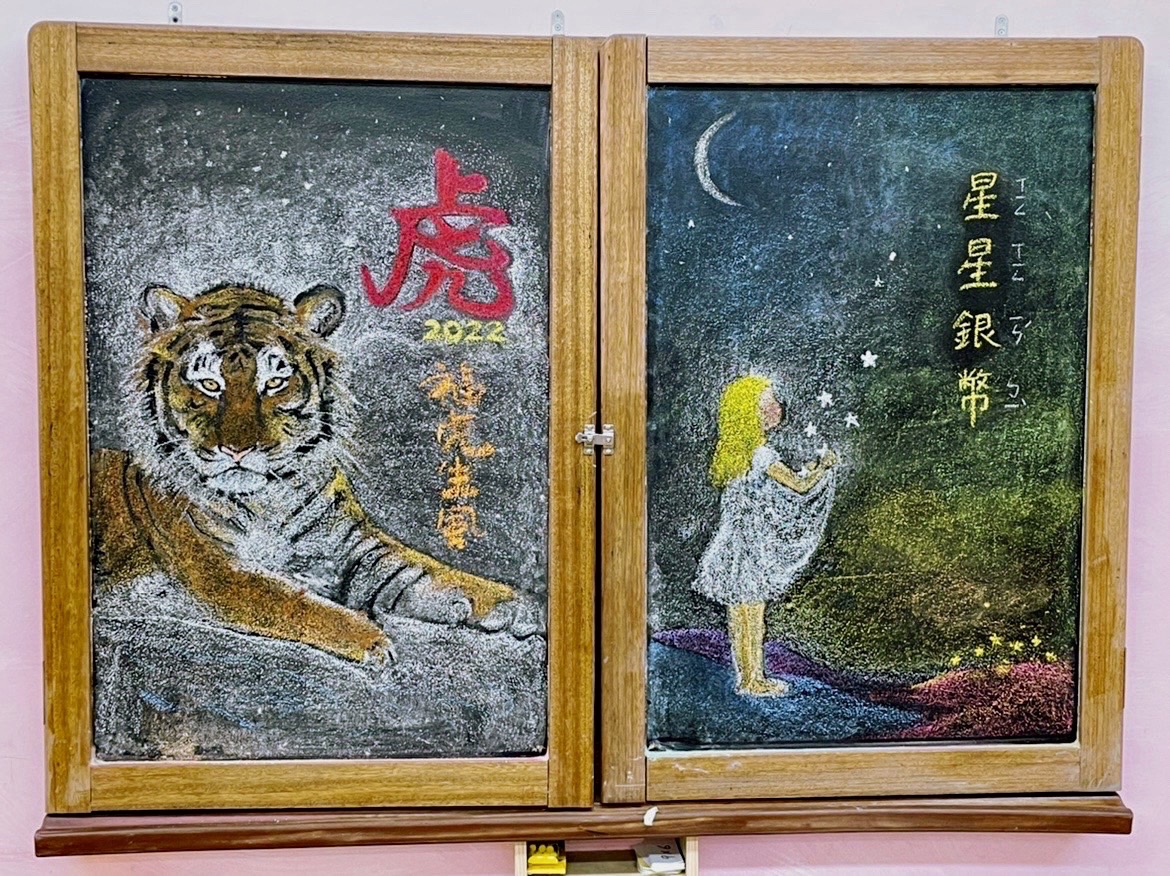 虎
2022
福虎生風
星星銀幣
ㄒㄧㄥ
ㄒㄧㄥ
ㄧㄣˊ
ㄅㄧˋ